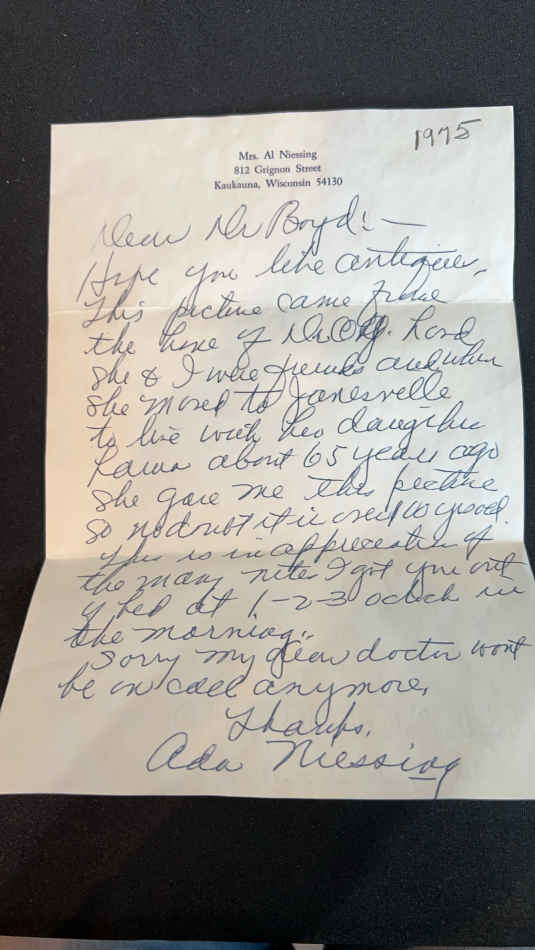 1975
Mrs. Al Niessing
812 Grignon Street
Kaukauna, Wisconsin 54130
Dear Dr Boyd! —
Hope you like antiques.
This picture came from
the home of Dr. Lord
she & I were friends and when
she moved to Janesville
to live with her daughter
about 65 years ago
she gave me this picture
so no doubt it is over 100 years old.
This is in appreciation of
the many nites I got you out
of bed at 1-2-3 oclock in
the morning.
Sorry my dear doctor wont
be on call anymore.
Thanks.
Ada Niessing